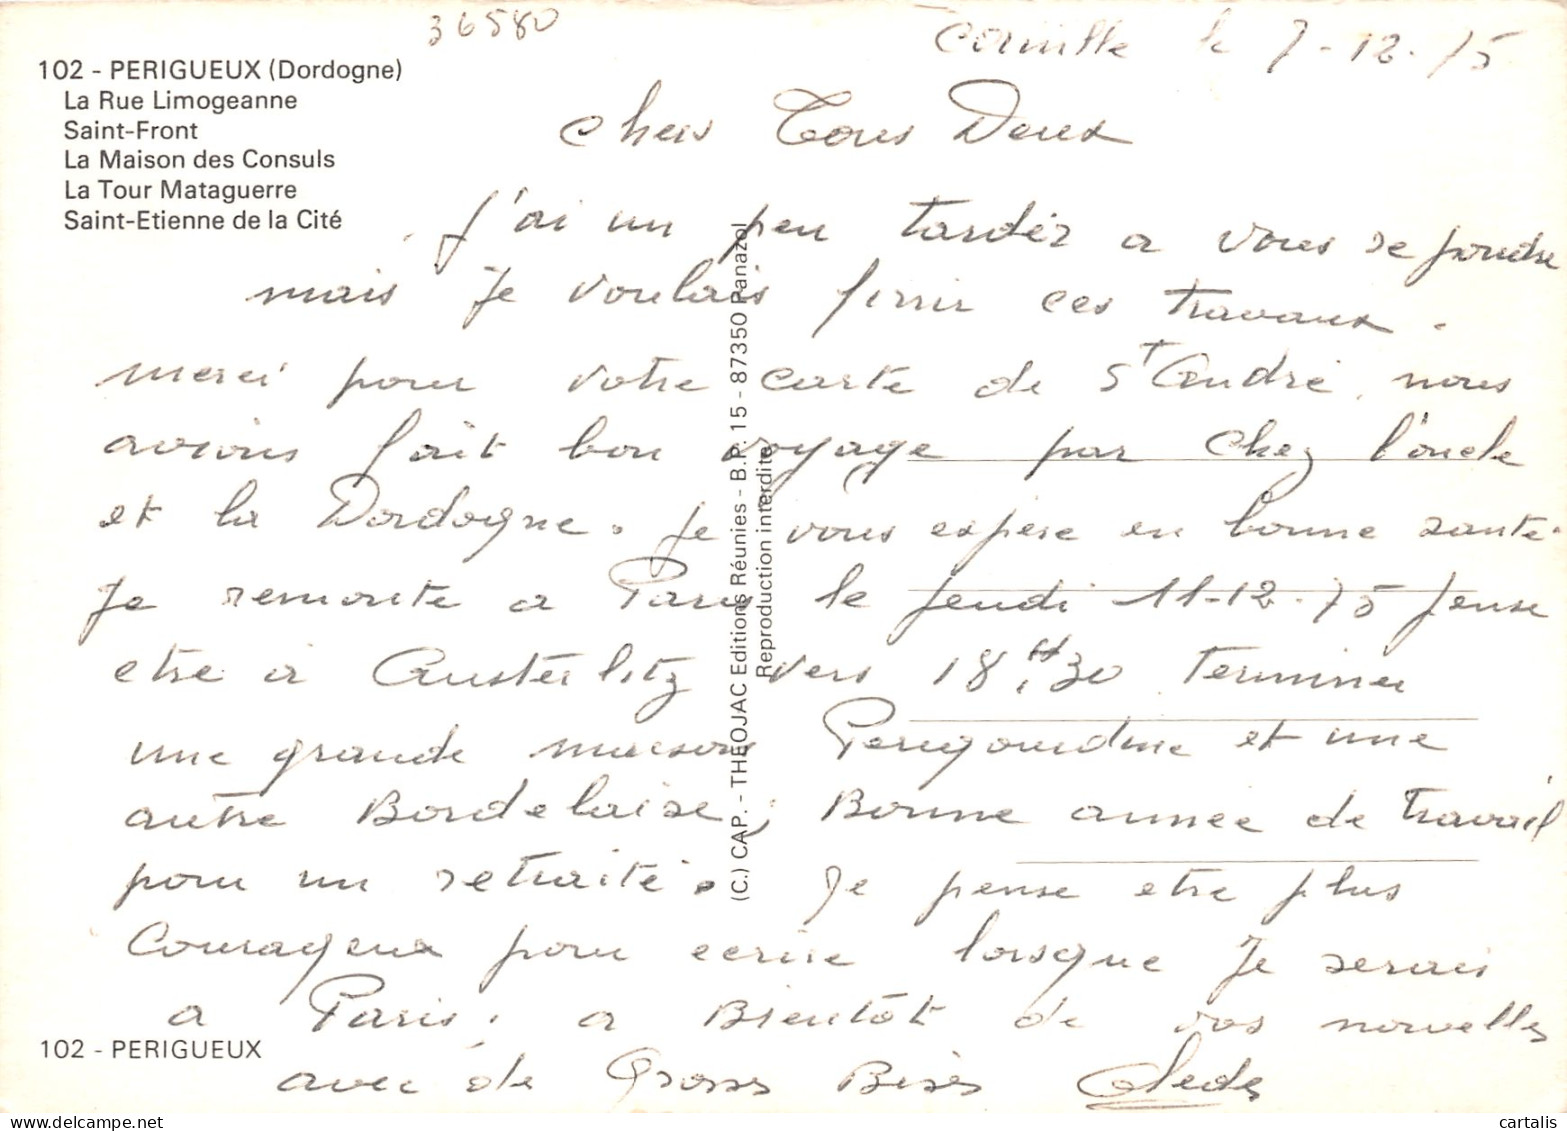 36580
102 - PERIGUEUX (Dordogne)
La Rue Limogeanne
Saint-Front
La Maison des Consuls
La Tour Mataguerre
Saint-Etienne de la Cité
Cornille le 7-12-75
Chers Tous Deux
J'ai un peu tardér a vous repondre
mais Je voulais finir ces travaux.
merci pour votre carte de St André, nous
avions fait bon voyage par chez l'oncle
et la Dordogne. Je vous espere en bonne santé.
Je remonte a Paris le Jeudi 11-12-75 pense
etre à Austerlitz vers 18H30 Terminer
une grande maison Perigourdine et une
autre Bordelaise, Bonne année de travail
pour un retraité. Je pense etre plus
Courageux pour ecrire lorsque Je serais
a Paris, a Bientôt de vos nouvelles
avec de Grosses Bises
(C.) CAP. - THEOJAC Editions Réunies - B.P. 15 - 87350 Panazol
Reproduction interdite
102 - PERIGUEUX
cartalis